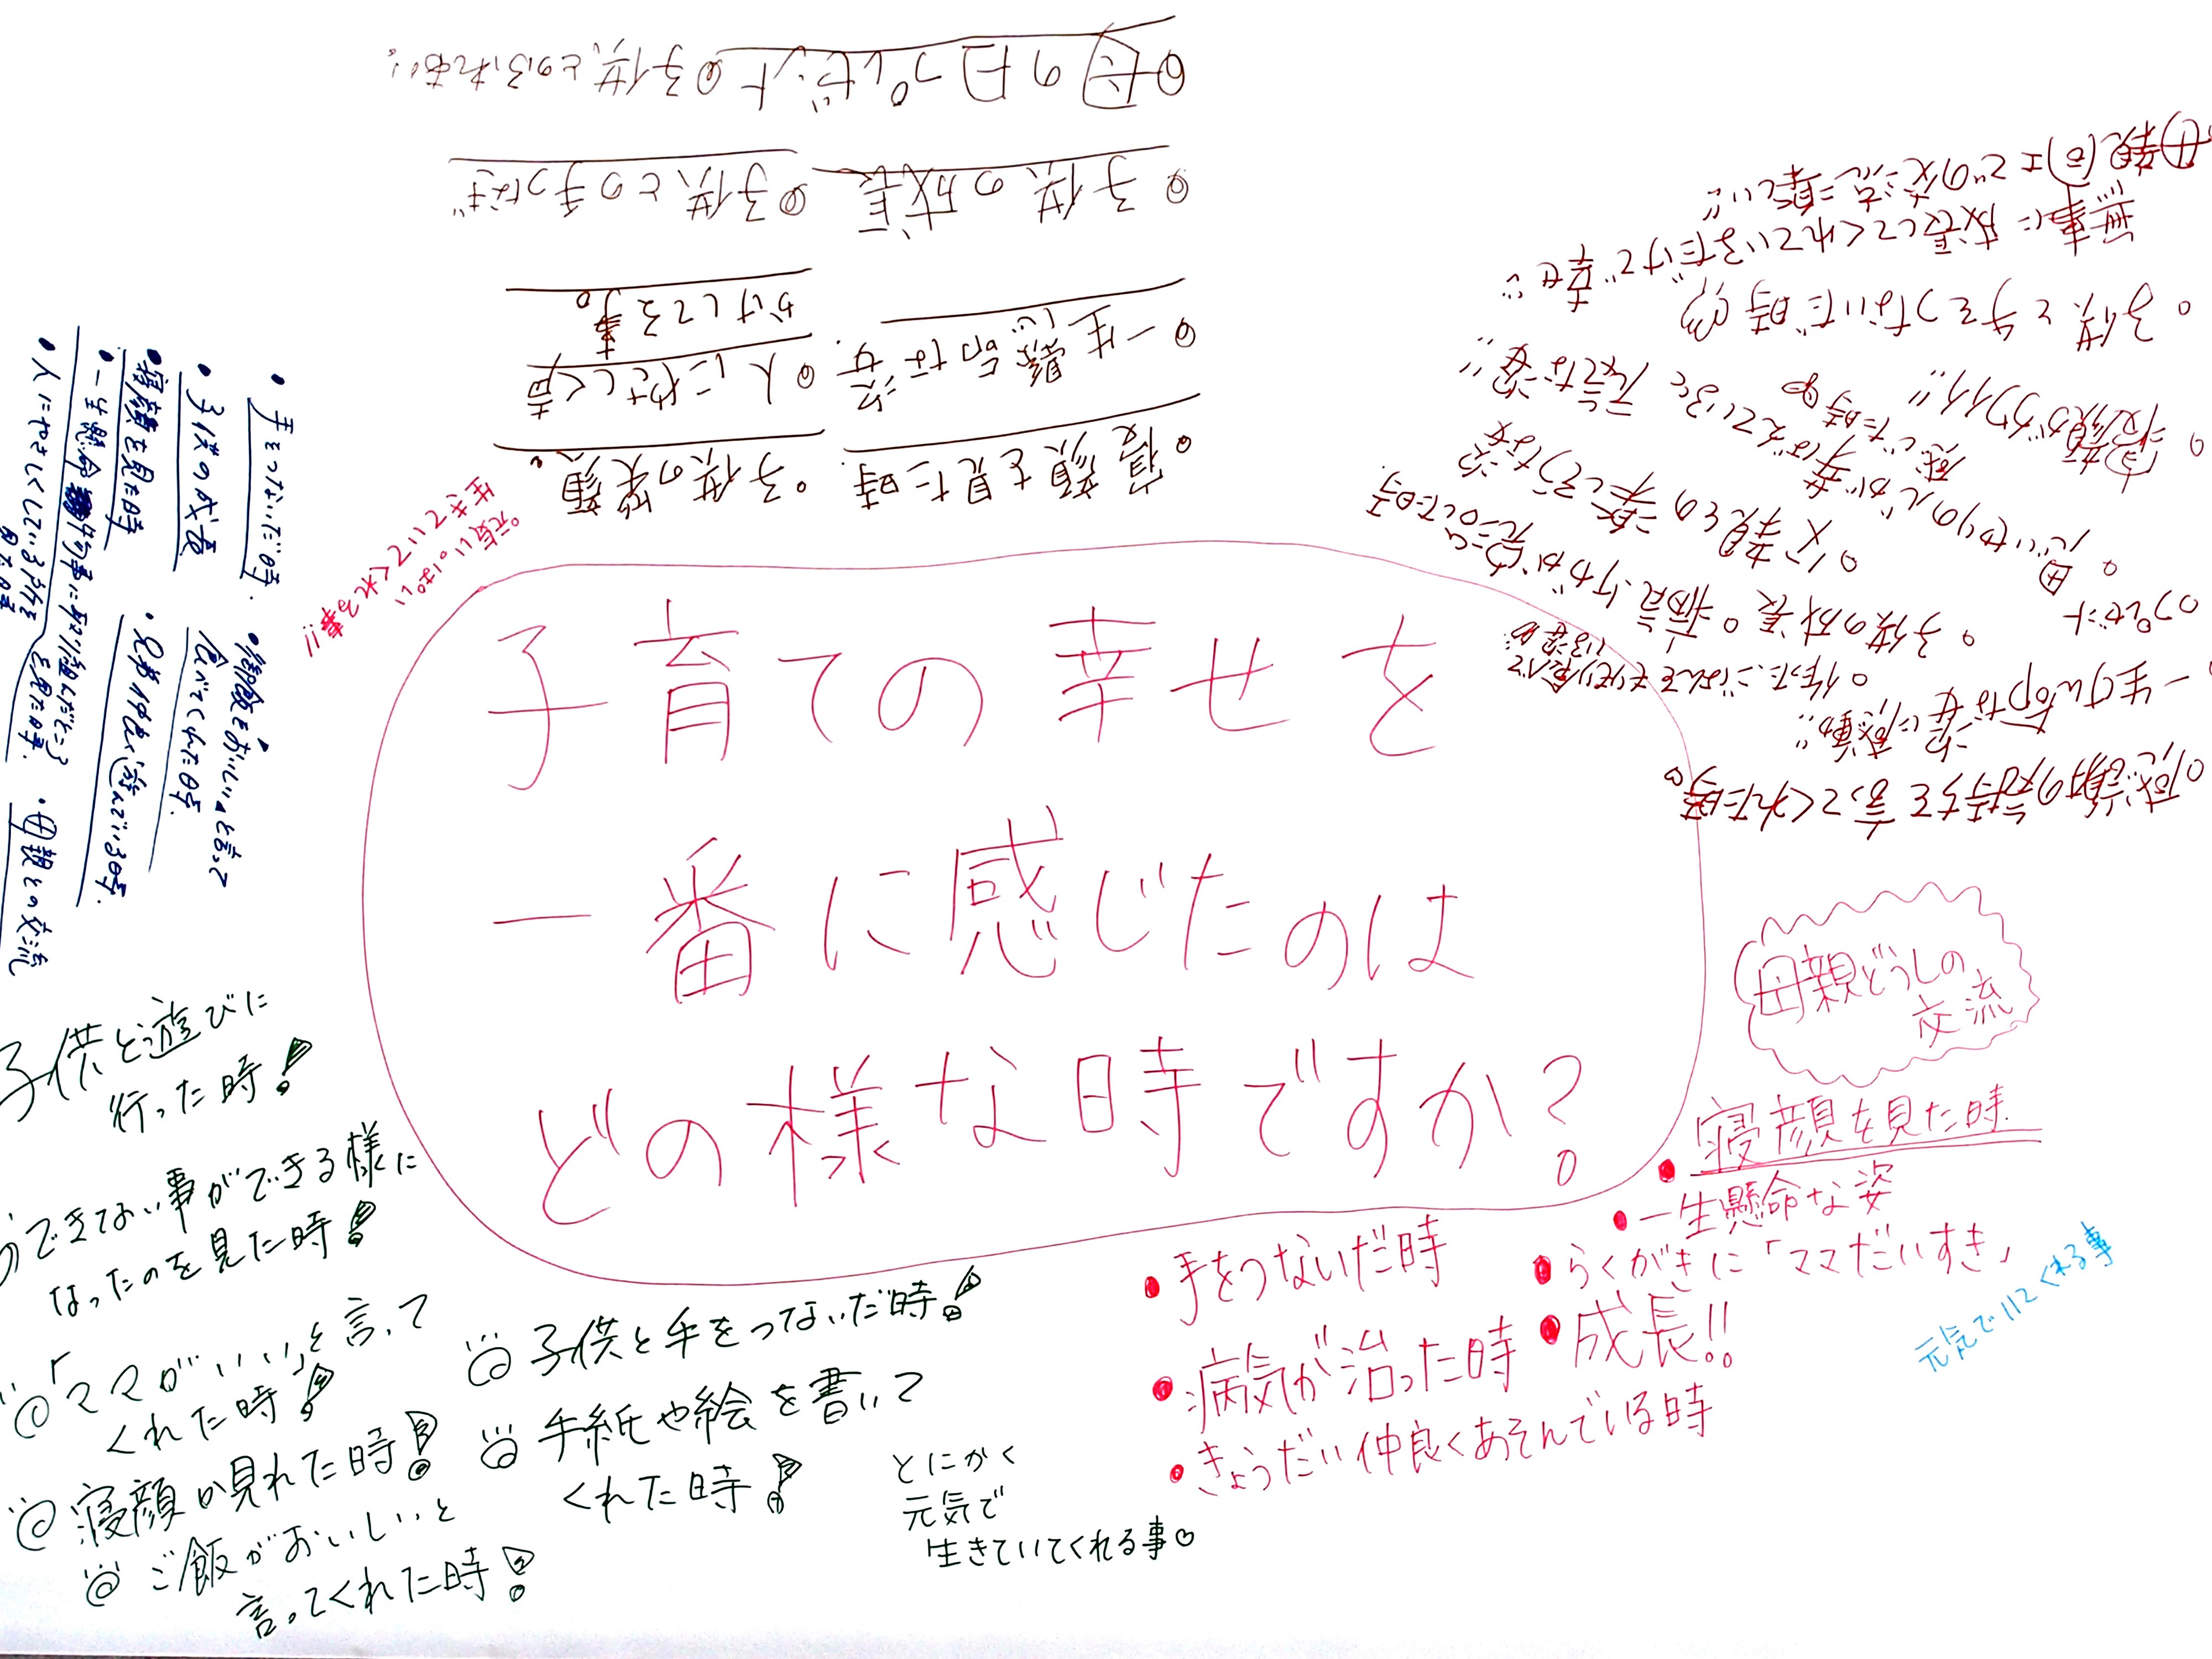 子育ての幸せを
一番に感じたのは
どの様な時ですか?
母親どうしの
交流
寝顔を見た時
・一生懸命な姿
・らくがきに「ママだいすき」
・成長!!
・手をつないだ時
・病気が治った時
・きょうだい仲良くあそんでいる時
元気でいてくれる事
とにかく
元気で
生きていてくれる事♡
子供と遊びに
行った時!
できない事ができる様に
なったのを見た時!
「ママがいい」と言って
くれた時!
寝顔が見れた時!
ご飯がおいしいと
言ってくれた時!
子供と手をつないだ時!
手紙や絵を書いて
くれた時!
・手をつないだ時.
・子供の成長
・寝顔を見た時
・一生懸命物事に取り組んだところ
を見た時.
・人にやさしくしている所を
見た時
・御飯をおいしいと言って
食べてくれた時.
・兄弟仲良く遊んでいる時.
・母親との交流
元気いっぱい
生きていてくれる事!!
・寝顔を見た時. ・子供の笑顔.
・一生懸命な姿. ・人にやさしく声
かけしてる事。
・子供の成長 ・子供との手つなぎ
・母の日プレゼント ・子供とのふれあい。
・感謝の気持ちを言ってくれた時。
・一生けん命な姿に感動!!
・プレゼント
・作ったごはんをモリモリ食べて
いる姿
・子供の成長 ・病気、ケガが
・父親との楽しそうな姿
・思いやりの心が芽ばえていると
感じた時
元気な姿!!
・寝顔がカワイイ!!
・子供と手をつないだ時
無事に成長してくれているだけで幸せ
母親同士での交流 楽しい!!